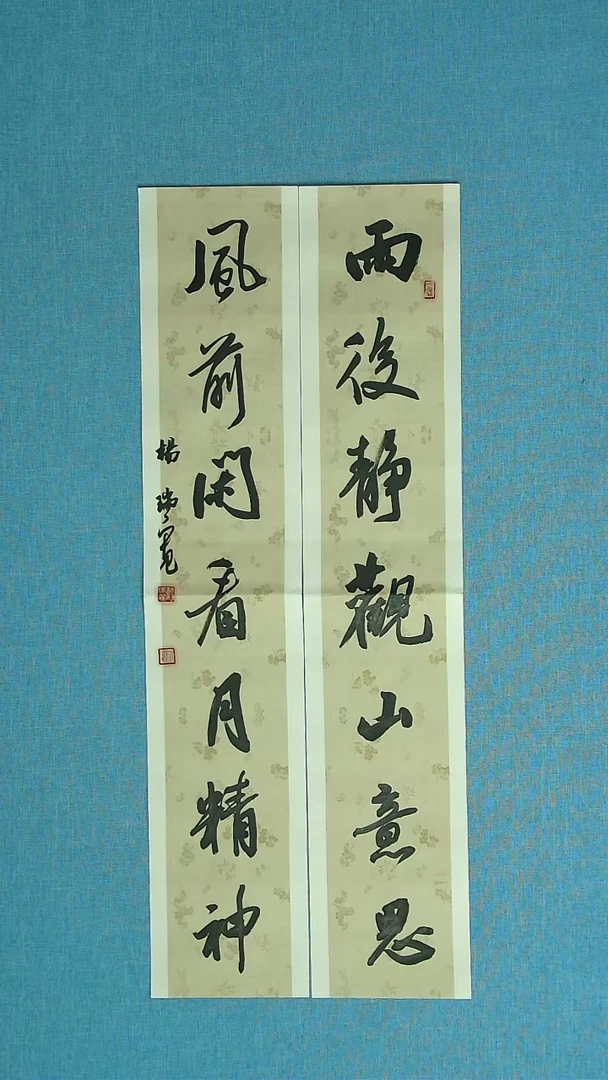 雨後静觀山意思
風前閑看月精神
楊瑞冕